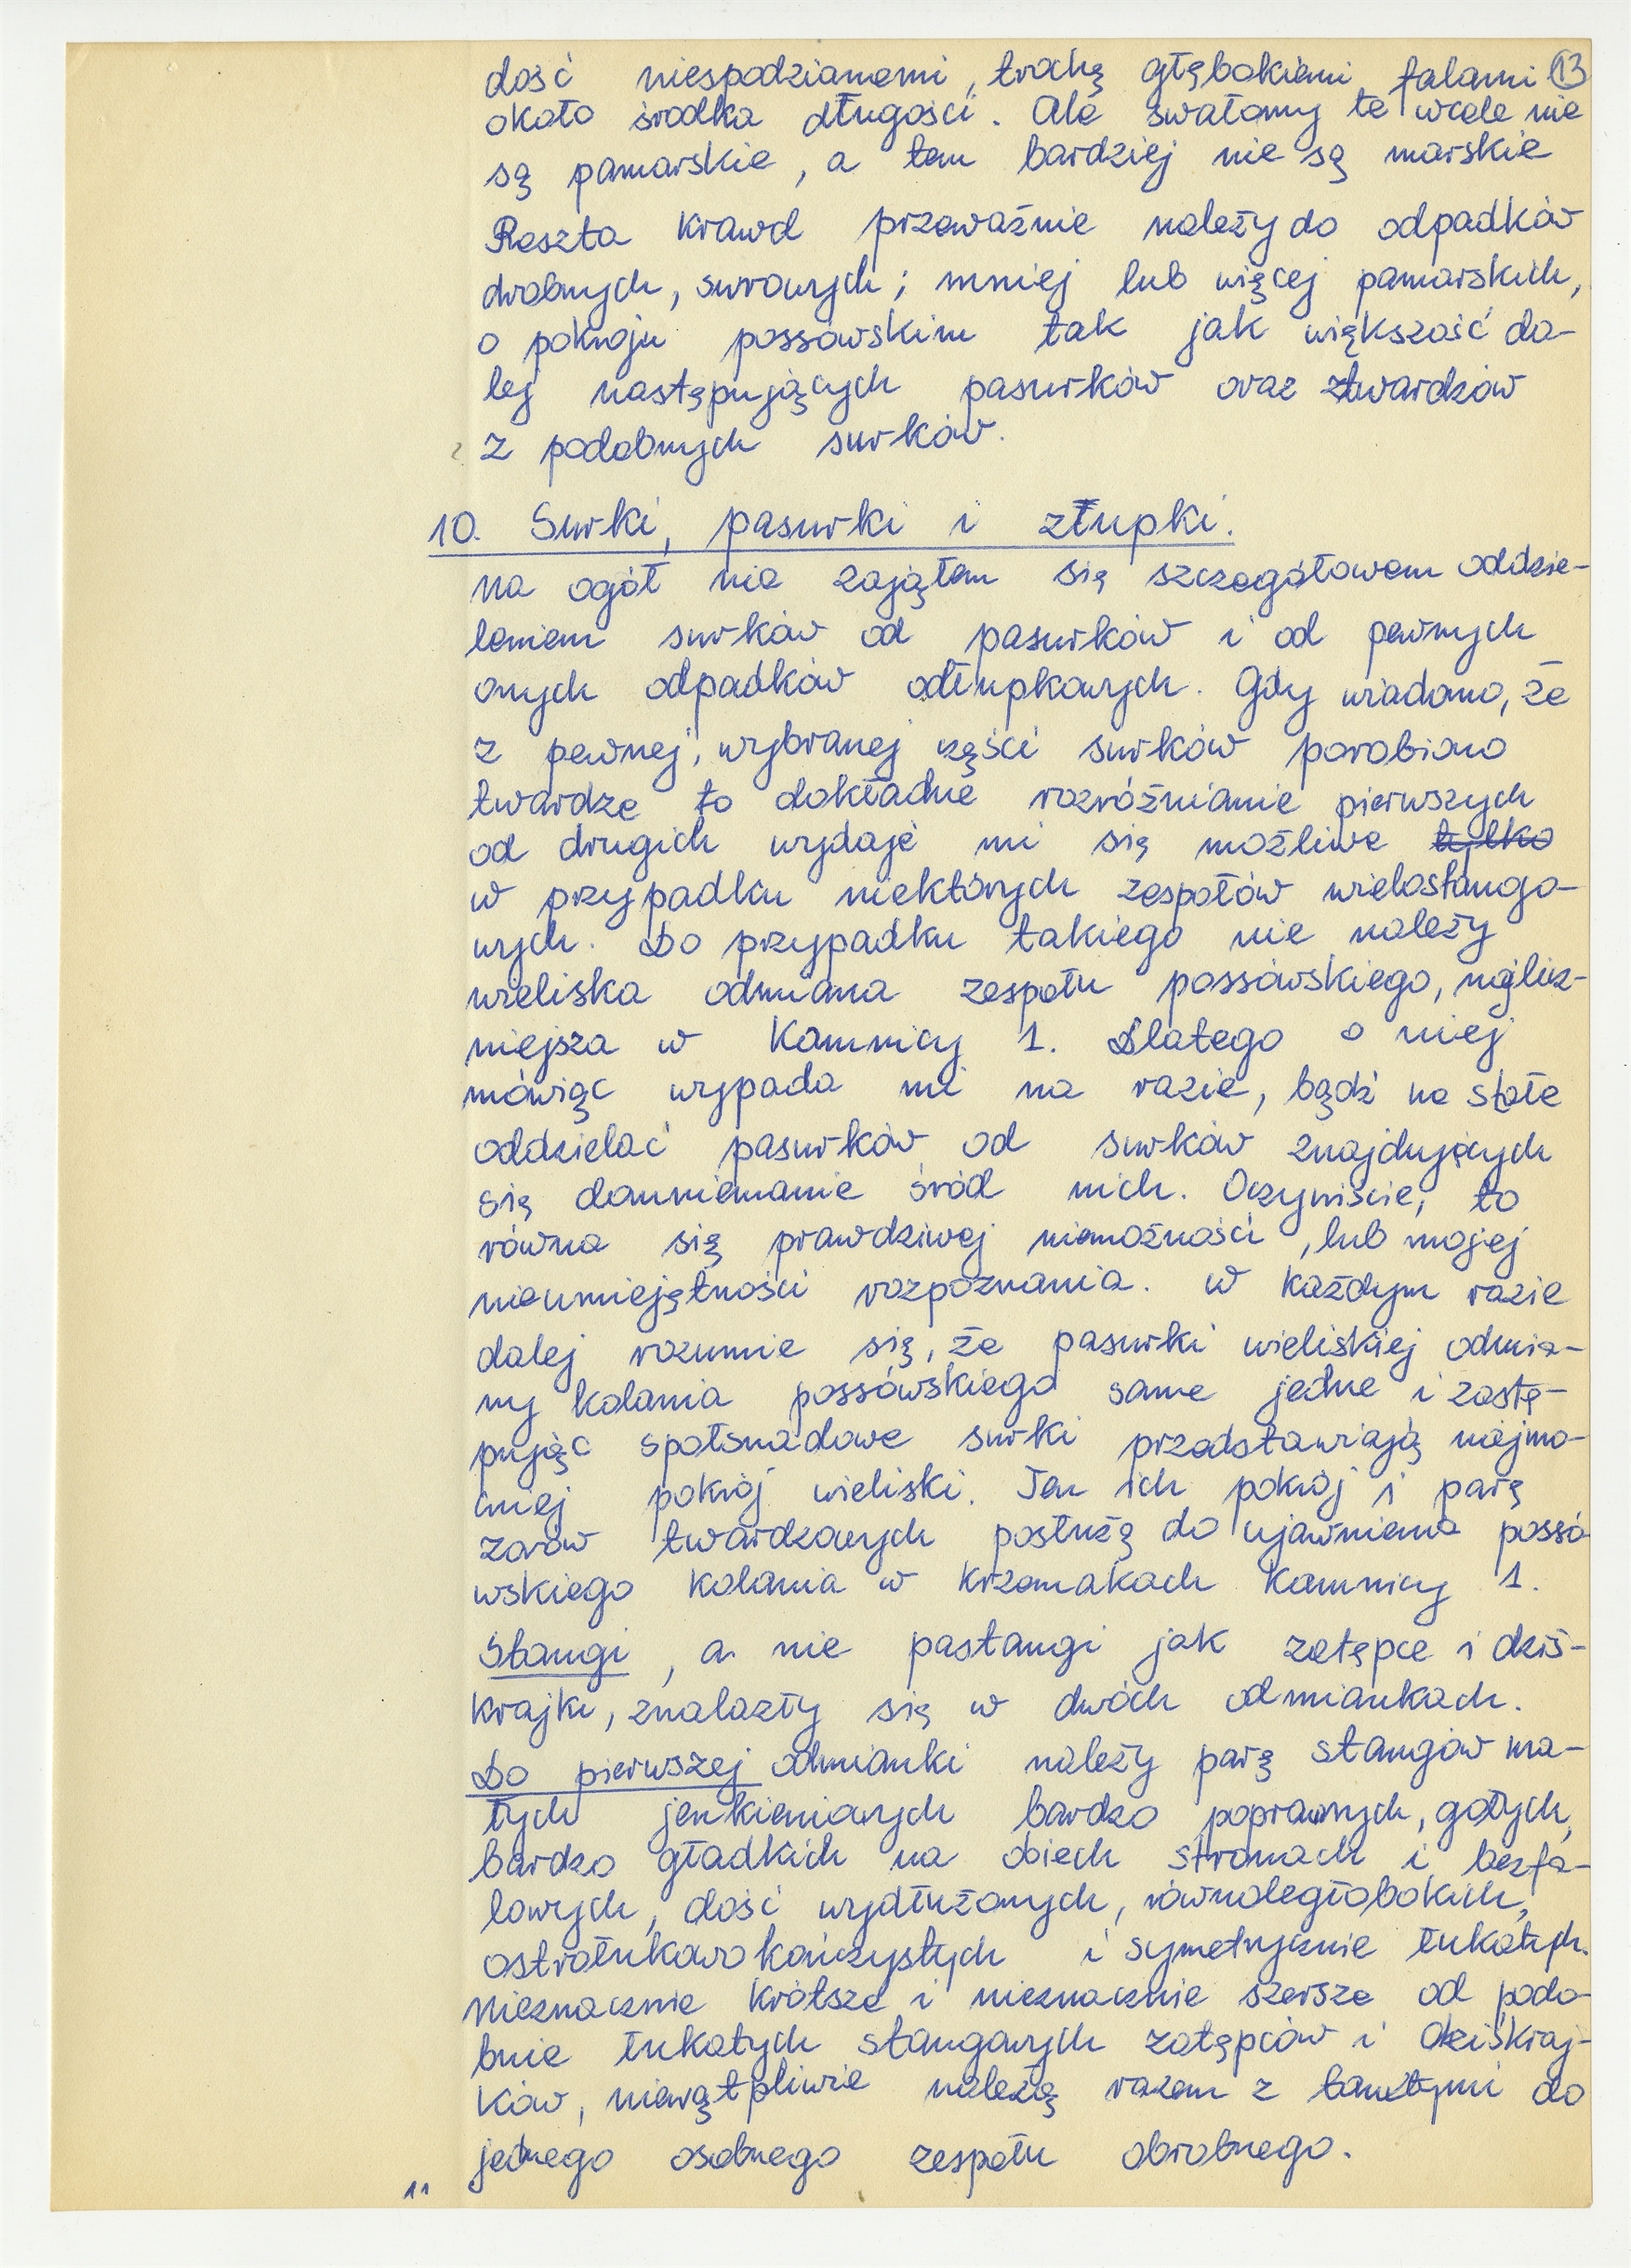 dość niespodzianemi, trochę głębokiemi falami 13
około środka długości. Ale swałomy te wcale nie
są pamarskie, a tem bardziej nie są marskie
Reszta krawd przeważnie należy do odpadków
drobnych, surowych; mniej lub więcej pamarskich,
o pokroju possówskim tak jak większość da-
lej następujących pasurków oraz twardzów
z podobnych surków.
10. Surki, pasurki i złupki.
na ogół nie zająłem się szczegółowem oddzie-
leniem surków od pasurków i od pewnych
onych odpadków odłupkowych. Gdy wiadomo, że
z pewnej, wybranej części surków porobiono
twardze to dokładne rozróżnianie pierwszych
od drugich wydaje mi się możliwe tylko
w przypadku niektórych zespołów wielostango-
wych. Do przypadku takiego nie należy
wieliska odmiana zespołu possówskiego, najlicz-
niejsza w Kamnicy 1. Dlatego o niej
mówiąc wypada mi na razie, bądź na stałe
oddzielać pasurków od surków znajdujących
się domniemanie śród nich. Oczywiście, to
równa się prawdziwej niemożności, lub mojej
nieumiejętności rozpoznania. W każdym razie
dalej rozumie się, że pasurki wieliskiej odmia-
ny kolania possówskiego same jedne i zastę-
pując społsnadowe surki przedstawiają najmo-
cniej pokrój wieliski. Ten ich pokrój i parę
zarów twardzowych posłużą do ujawnienia possó
wskiego kolania w krzemakach Kamnicy 1.
Stangi, a nie pastangi jak zatępce i dziś-
krajki, znalazły się w dwóch odmiankach.
Do pierwszej odmianki należy parę stangów ma-
łych jenkieniowych bardzo poprawnych, gołych,
bardzo gładkich na obiech stronach i bezfa-
lowych, dość wydłużonych, równoległobokich,
ostrołukowo kończystych i symetrycznie łukatych.
Nieznacznie krótsze i nieznacznie szersze od podo-
bnie łukatych stangowych zatępców i dziśkraj-
ków, niewątpliwie należą razem z tamtymi do
jednego osobnego zespołu obrobnego.
11